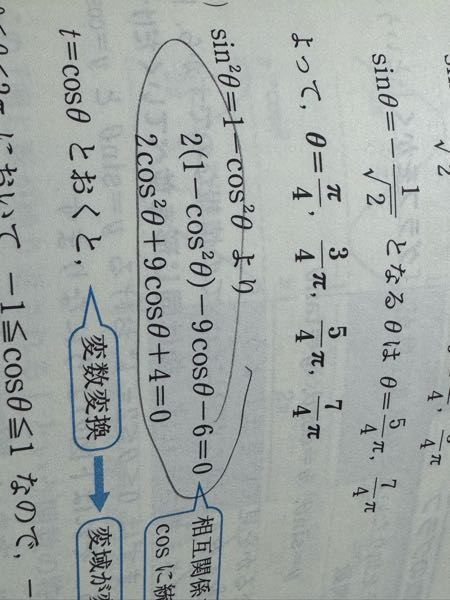 sinθ=-1/√2 となる θは θ=5/4π, 7/4π
よって, θ=π/4, 3/4π, 5/4π, 7/4π
sin²θ=1-cos²θ より
2(1-cos²θ)-9cosθ-6=0
相互関係
cosに
2cos²θ+9cosθ+4=0
t=cosθ とおくと,
変数変換
変域が
において -1≦cosθ≦1 なので,